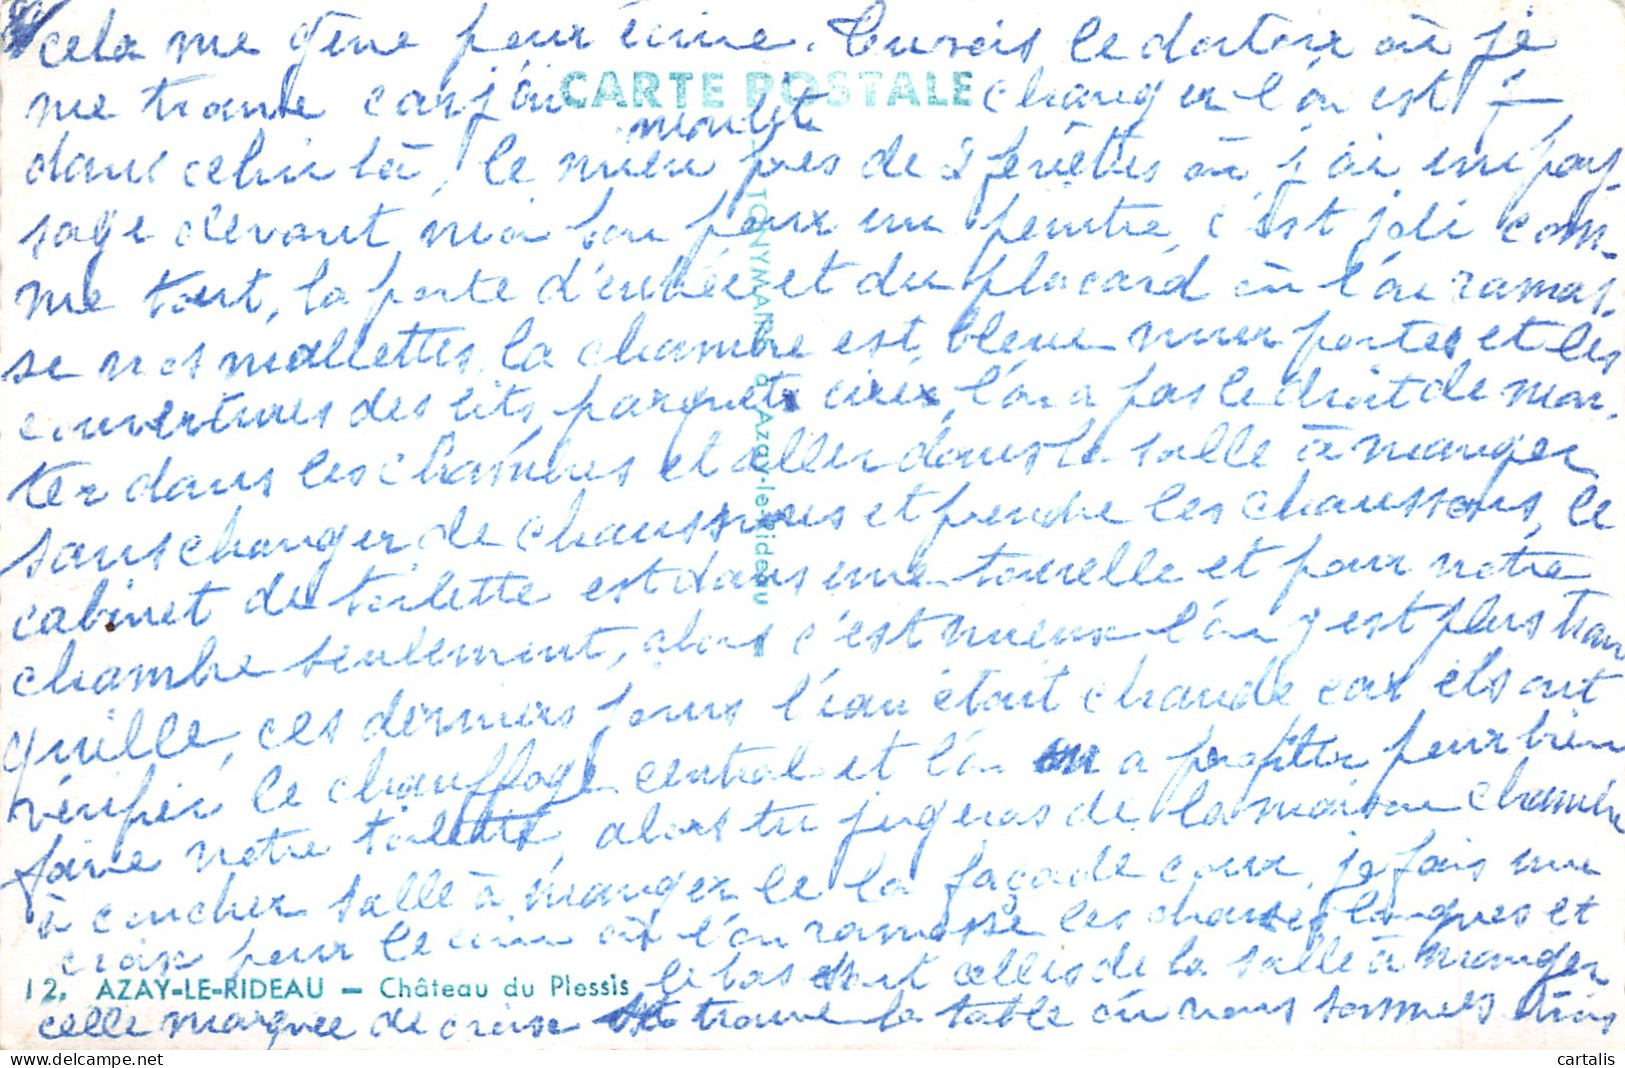 cela me gêne pour écrire. Tu vois le dortoir où je
CARTE POSTALE
me trouve car j'ai changer l'on est 7
dans celui là, le mieu montité près de 2 fenêttes où j'ai un pay-
sage devant moi bon pour un peintre, c'est joli com-
me tout, la porte d'entrée et du placard où l'on ramas-
se nos mallettes, la chambre est bleue mur portes et les
couvertures des lits, parquet cirée, l'on a pas le droit de mon-
ter dans les chambres et aller dans la salle à manger
sans changer de chaussures et prendre les chaussons, le
cabinet de toilette est dans une tourelle et pour notre
chambre seulement, alors c'est mieux l'on y est plus tran
quille, ces derniers jours l'eau était chaude car ils ont
vérifier le chauffage central et l'on en a profitter pour bien
faire notre toilette, alors tu jugeras de la maison chambre
à coucher salle à manger le la façade cour, je fais une
croix pour le coin où l'on ramasse les chaises longues et
12. AZAY-LE-RIDEAU – Château du Plessis
le bas c'est celles de la salle à manger
celle marquée de croix trouve la table où nous sommes trois
TONYMAIRE à Azay-le-Rideau